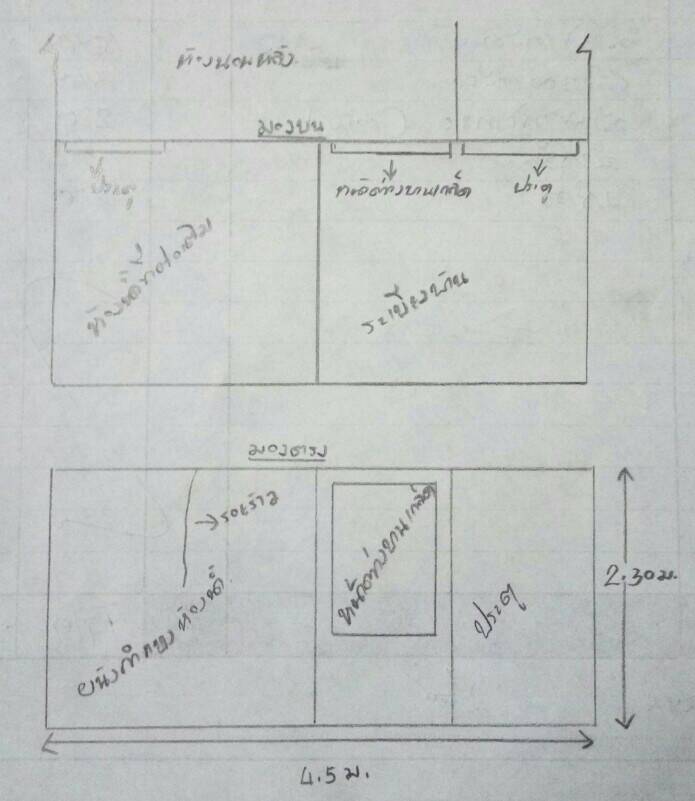 ห้องนอนหลัง
มองบน
ประตู
หน้าต่างบานเกล็ด
ประตู
ห้องน้ำที่ต่อเติม
ระเบียงบ้าน
มองตรง
รอยร้าว
หน้าต่างบานเกล็ด
ผนังกำแพงห้องน้ำ
ประตู
2.30ม.
4.5 ม.